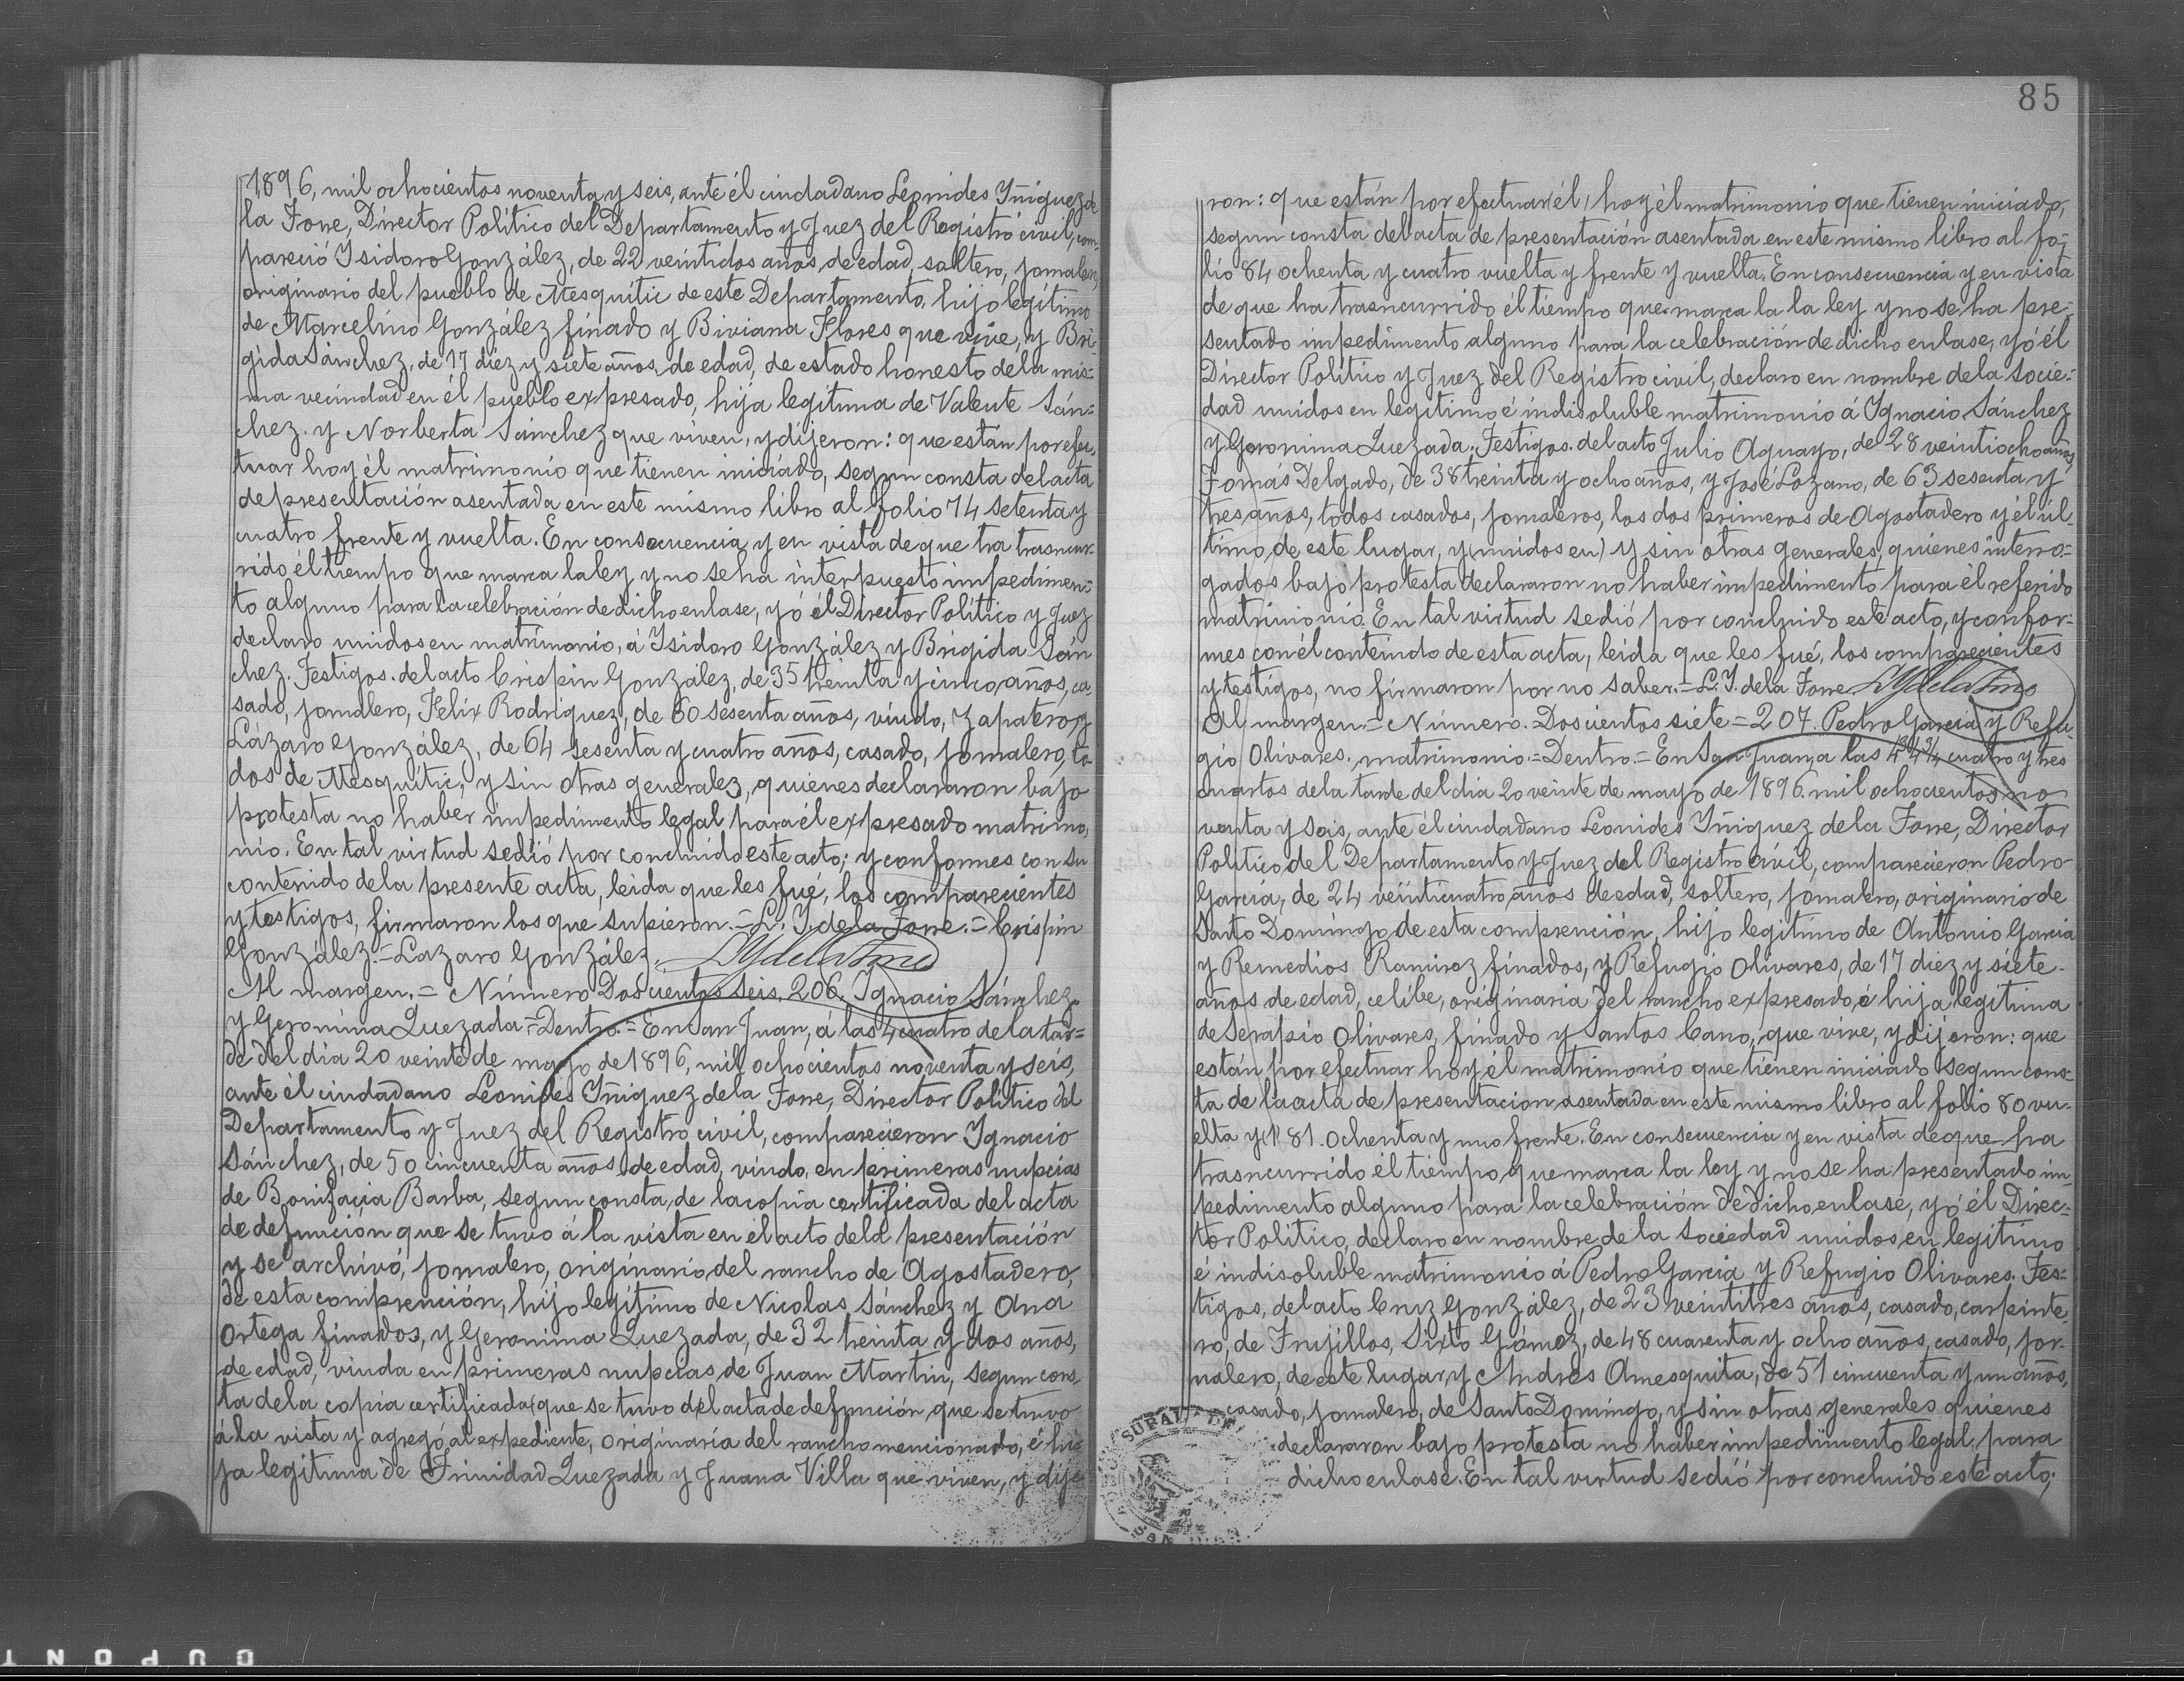 1896, mil ochocientos noventa y seis, ante él ciudadano Leonides Yñiguez de
la Torre, Director Político del Departamento y Juez del Registro civil, com-
pareció Isidoro González, de 22 veintidos años de edad, soltero, jornalero,
originario del pueblo de Mesquitic de este Departamento, hijo legítimo
de Marcelino González finado y Biviana Flores que vive, y Bri-
gida Sánchez, de 17 diez y siete años, de edad, de estado honesto de la mis-
ma vecindad en él pueblo expresado, hija legitima de Valente Sán-
chez y Norberta Sanchez que viven, y dijeron: que están por efec-
tuar hoy él matrimonio que tienen iniciado, segun consta del acta
de presentación asentada en este mismo libro al folio 74 setenta y
cuatro frente y vuelta. En consecuencia y en vista de que tra trascur-
rido él tiempo que marca la ley y no se ha interpuesto impedimen-
to alguno para la celebración de dicho enlase, yó él Director Político y Juez
declaro unidos en matrimonio, á Isidoro González y Brigida Sán
chez. Testigos del acto Crispin González, de 35 treinta y cinco años, ca-
sado, jornalero, Felix Rodriguez, de 60 sesenta años, viudo, zapatero, y
Lázaro González, de 64 sesenta y cuatro años, casado, jornalero, to-
dos de Mesquitic, y sin otras generales, quienes declararon bajo
protesta no haber impedimento legal para él expresado matrimo-
nio. En tal virtud se dió por concluido este acto; y conformes con su
contenido de la presente acta, leida que les fué, los comparecientes
y testigos, firmaron los que supieron.=L. Y. de la Torre.=Crispin
González.=Lazaro González.
Al margen.= Número Doscientos seis. 206. Ygnacio Sánchez
y Geronima Quezada=Dentro.=En San Juan, á las 4 cuatro de la tar-
de del dia 20 veinte de mayo de 1896, mil ochocientos noventa y seis,
ante él ciudadano Leonides Yñiguez de la Torre, Director Político del
Departamento y Juez del Registro civil, comparecieron Ygnacio
Sánchez, de 50 cincuenta años de edad, viudo, en primeras nupcias
de Bonifacia Barba, segun consta de la copia certificada del acta
de defunción que se tuvo á la vista en el acto de la presentación
y se archivó, jornalero, originario del rancho de Agostadero,
de esta comprención, hijo legítimo de Nicolas Sánchez y Ana
Ortega finados, y Geronima Quezada, de 32 treinta y dos años,
de edad, viuda en primeras nupcias de Juan Martin, segun cons-
ta de la copia certificada (que se tuvo del acta de defunción que se tuvo
á la vista y agregó al expediente, originaria del rancho mencionado, é hi-
ja legitima de Trinidad Quezada y Juana Villa que viven, y dije-
85
ron: que están por efectuar (él) hoy él matrimonio que tienen iniciado,
segun consta del acta de presentación asentada en este mismo libro al fo-
lio 84 ochenta y cuatro vuelta y frente y vuelta. En consecuencia y en vista
de que ha trasncurrido él tiempo que marca la la ley y no se ha pre-
sentado impedimento alguno para la celebración de dicho enlase, yó él
Director Político y Juez del Registro civil, declaro en nombre de la socie-
dad unidos en legitimo é indisoluble matrimonio á Ygnacio Sánchez
y Geronima Quezada. Testigos del acto Julio Aguayo, de 28 veintiocho años,
Tomás Delgado, de 38 treinta y ocho años, y José Lozano, de 63 sesenta y
tres años, todos casados, jornaleros, los dos primeros de Agostadero y él úl-
timo de este lugar, y (unidos en) y sin otras generales, quienes interro-
gados bajo protesta declararon no haber impedimento para él referido
matrimonio. En tal virtud se dió por concluido este acto, y confor-
mes con él contenido de esta acta, leida que les fué, los comparecientes
y testigos, no firmaron por no saber.=L. Y. de la Torre
Al margen.= Número. Doscientos siete=207. Pedro Garcia y Refu-
gio Olivares. matrimonio.=Dentro.=En San Juan, a las 4 3/4 cuatro y tres
cuartos de la tarde del dia 20 veinte de mayo de 1896. mil ochocientos no
venta y seis, ante él ciudadano Leonides Yñiguez de la Torre, Director
Político del Departamento y Juez del Registro civil, comparecieron Pedro
Garcia, de 24 veinticuatro años de edad, soltero, jornalero, originario de
Santo Domingo de esta comprención, hijo legitimo de Antonio Garcia
y Remedios Ramirez finados, y Refugio Olivares, de 17 diez y siete
años de edad, celibe, originaria del rancho expresado, é hija legitima
de Serapio Olivares, finado y Santos Cano, que vive, y dijeron: que
están por efectuar hoy él matrimonio que tienen iniciado segun cons-
ta de la acta de presentación asentada en este mismo libro al folio 80 vu-
elta y 81. ochenta y uno frente. En consecuencia y en vista de que ha
trasncurrido él tiempo que marca la ley y no se ha presentado im-
pedimento alguno para la celebración de dicho enlase, yó él Direc-
tor Político, declaro en nombre de la sociedad unidos en legitimo
é indisoluble matrimonio á Pedro Garcia y Refugio Olivares. Tes-
tigos, del acto Cruz González, de 23 veintitres años, casado, carpinte-
ro, de Trujillos, Sixto Gómez, de 48 cuarenta y ocho años, casado, jor-
nalero, de este lugar, y Andres Amesquita, de 51 cincuenta y un años,
casado, jornalero, de Santo Domingo, y sin otras generales quienes
declararon bajo protesta no haber impedimento legal para
dicho enlase. En tal virtud se dió por concluido este acto;